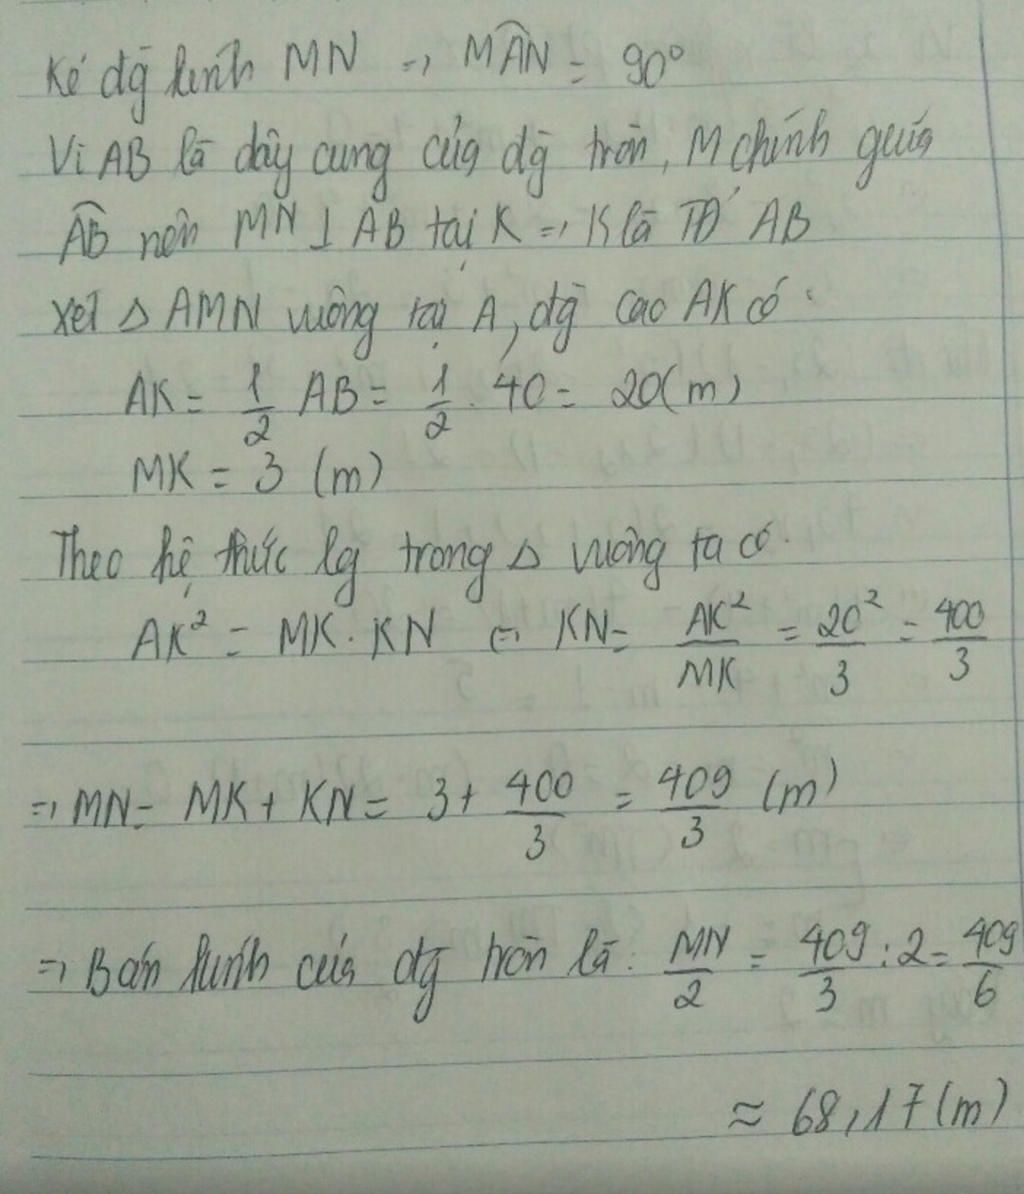 Kẻ đg kính MN => MÂN = 90°
Vì AB là dây cung của đg tròn, M chính giữa
AB nên MN ⊥ AB tại K => K là TĐ AB
Xét Δ AMN vuông tại A, đg cao AK có:
AK = 1/2 AB = 1/2 . 40 = 20(m)
MK = 3 (m)
Theo hệ thức lg trong Δ vuông ta có.
AK² = MK . KN <=> KN = AK²/MK = 20²/3 = 400/3
=> MN = MK + KN = 3 + 400/3 = 409/3 (m)
=> Bán kính của đg tròn là: MN/2 = 409/3 : 2 = 409/6
≈ 68,17(m)